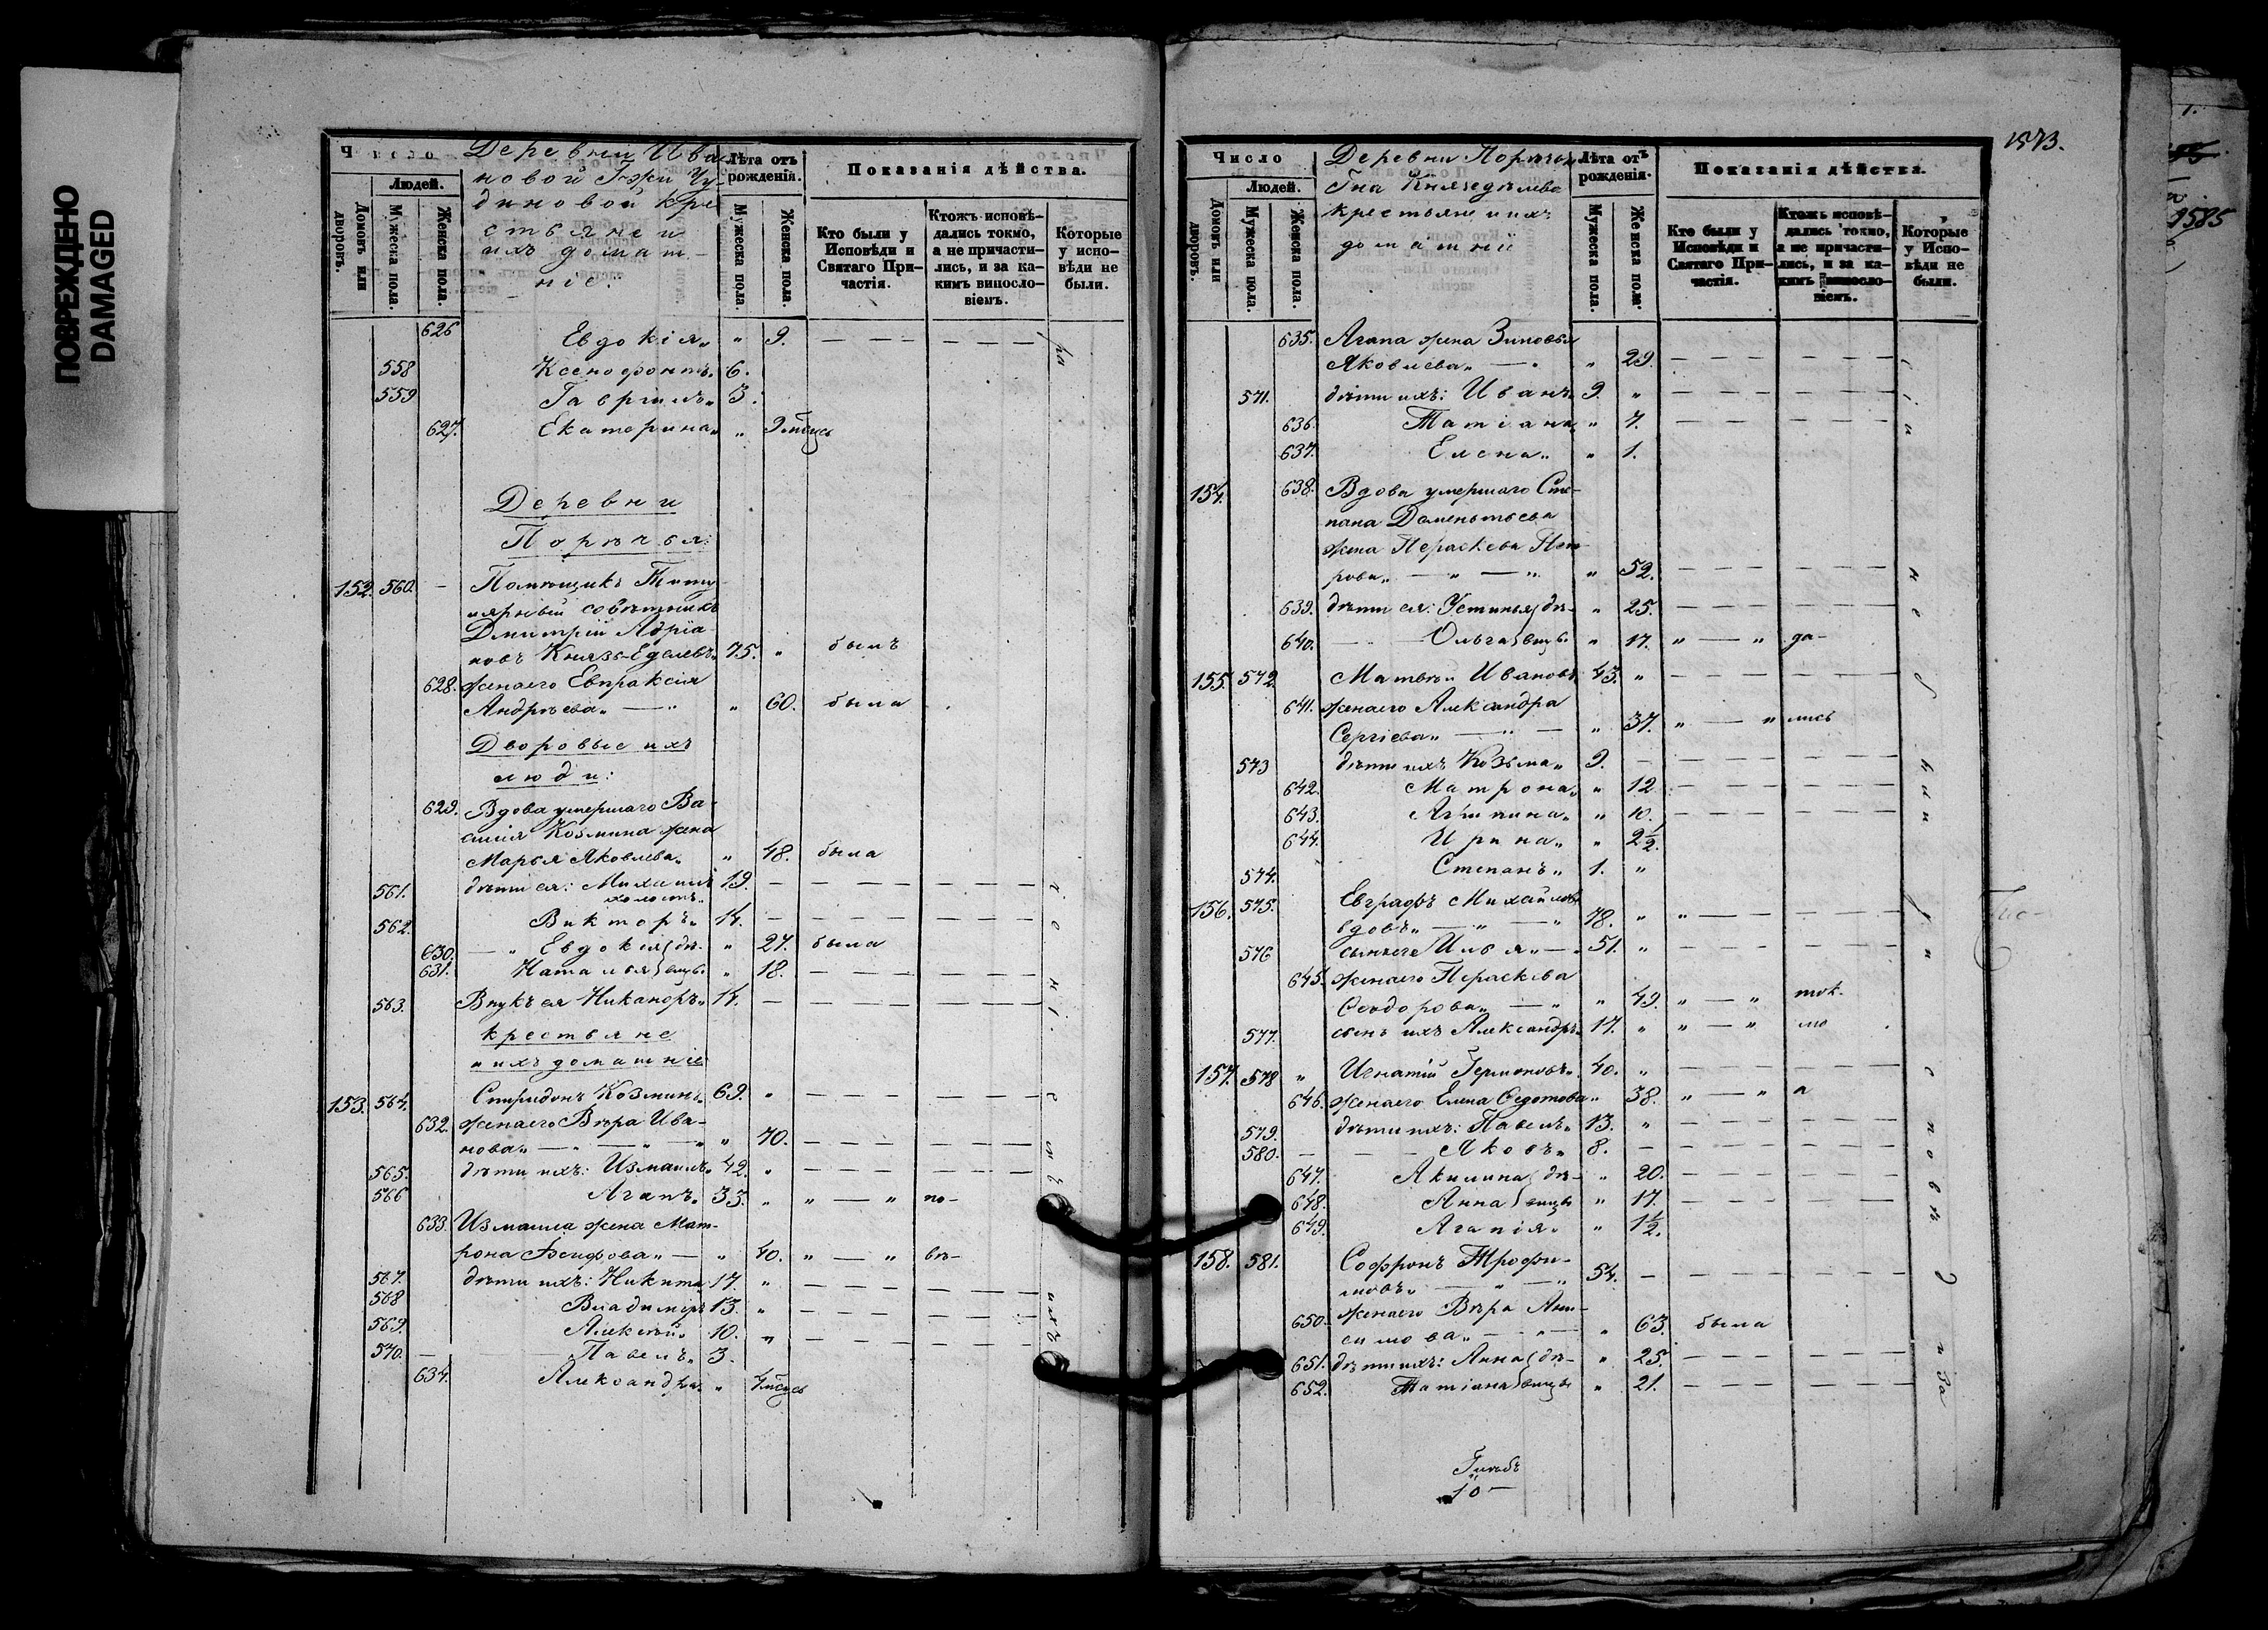 ПОВРЕЖДЕНО
DAMAGED
Число
Людей.
Домовъ или дворовъ.
Мужеска пола.
Женска пола.
Деревни Ива-
новой Г-жи Чу-
диновой кре
стьяне и
ихъ домаш-
ніе:
Лѣта отъ рожденія.
Мужеска пола.
Женска пола.
Показанія дѣйства.
Кто были у Исповѣди и Святаго При-частія.
Ктожъ исповѣ-дались токмо, а не причасти-лись, и за ка-кимъ винословіемъ.
Которые у испо-вѣди не были.
626 Евдокія „ „ 9. — — — — — —
558 Ксенофонтъ „ 6.
559 Гавріилъ „ 3.
627. Екатерина „ „ 9 мѣсць
Деревни
Порѣчья:
152. 560. — Помѣщикъ Титу
лярный совѣтникъ
Дмитрій Адріа
новъ Князь-Еделевъ „ 75. „ былъ
628. жена его Евпраксія
Андрѣева „ — „ „ 60. была
Дворовые ихъ
люди:
629. Вдова умершаго Ва-
силія Козмина жена
Марья Яковлева „ „ 48. была
561. дѣти ея: Михаилъ 19. — — — — — —
холостъ „
562. Викторъ „ 14. — — — — — —
630. — „ Евдокія } дѣ- „ 27. была
631. Наталья } вицы „ 18. — — — — — —
563. Внукъ ея Никаноръ „ 14. — — — — — —
крестьяне
и ихъ домашніе
153. 564. Спиридонъ Козминъ „ 69. „ — — — — — —
632. жена его Вѣра Ива-
нова „ — „ — „ — „ „ 70. — — — — — —
565. дѣти ихъ: Измаилъ „ 42. „ — — — — — —
566 Агапъ „ 33. „ „ — „ по-
633. Измаила жена Мат-
рона „ — „ 40. „ — „ вѣ-
567. дѣти ихъ: Никита 17. „ — — — — — —
568 Владиміръ 13. „ — — — — — —
569. Алексѣй „ 10. „ — — — — — —
570. — Павелъ „ 3.
634. Александра „ „ 4 мѣсць
1573.
Число
Людей.
Домовъ или дворовъ.
Мужеска пола.
Женска пола.
Деревни Порѣчья
Г-на Князеделева
крестьяне и ихъ
домашніи
Лѣта отъ рожденія.
Мужеска пола.
Женска пола.
Показанія дѣйства.
Кто были у Исповѣди и Святаго При-частія.
Ктожъ исповѣ-дались токмо, а не причасти-лись, и за ка-кимъ винословіемъ.
Которые у Испо-вѣди не были.
635. Агапа жена Зиновья
Яковлева „ — „ „ 29. — — — — — —
571. дѣти ихъ: Иванъ 9. „ — — — — — —
636. Татіана „ 7. — — — — — —
637. Елена „ „ 1.
154. 638. Вдова умершаго Сте-
пана Доментьева
жена Пераскева Пет-
рова „ — „ — „ „ 52. — — — — — —
639. дѣти ея: Устинья } дѣ- „ 25. — — — — — —
640. — — Ольга } вицы „ 17. „ — „ да-
155. 572. Матвѣй Ивановъ 43. „ — — — — — —
641. жена его Александра
Сергіева „ — „ — „ 37. „ — „ лись
573 дѣти ихъ Козьма „ 9. — — — — — —
642. Матрона „ „ 12 — — — — — —
643. „ „ 10. — — — — — —
644. Ирина „ „ 2½.
574. Степанъ „ 1. „
156. 575. Евграфъ Михайловъ
вдовъ „ — „ — „ 78. „ „ — — — — —
576 сынъ его Илья „ — „ 51. „ — — — — — —
645. жена его Пераскева
Сидорова „ — „ „ 49. „ — „ ток-
577. сынъ ихъ Александръ 17. „ „ — „ мо
157. 578 „ Игнатій Гермоновъ „ 40. „ — — — — — —
646. жена его Елена Федотова „ 38. „ — „ а
579. дѣти ихъ: Павелъ „ 13. „ — — — — — —
580. — — — Яковъ „ 8. — — — — — —
647. Акилина } дѣ- „ 20. — — — — — —
648. Анна } вицы „ 17. — — — — — —
649. Агапія „ „ 1½.
158. 581. Софронъ Трофи-
мовъ „ — „ — „ 54. — — — — — —
650. жена его Вѣра Ани-
симова „ — „ — „ 63. была
651. дѣти ихъ: Анна } дѣ- „ 25. — — — — — —
652. Татіана } вицы „ 21. — — — — — —
10
1585